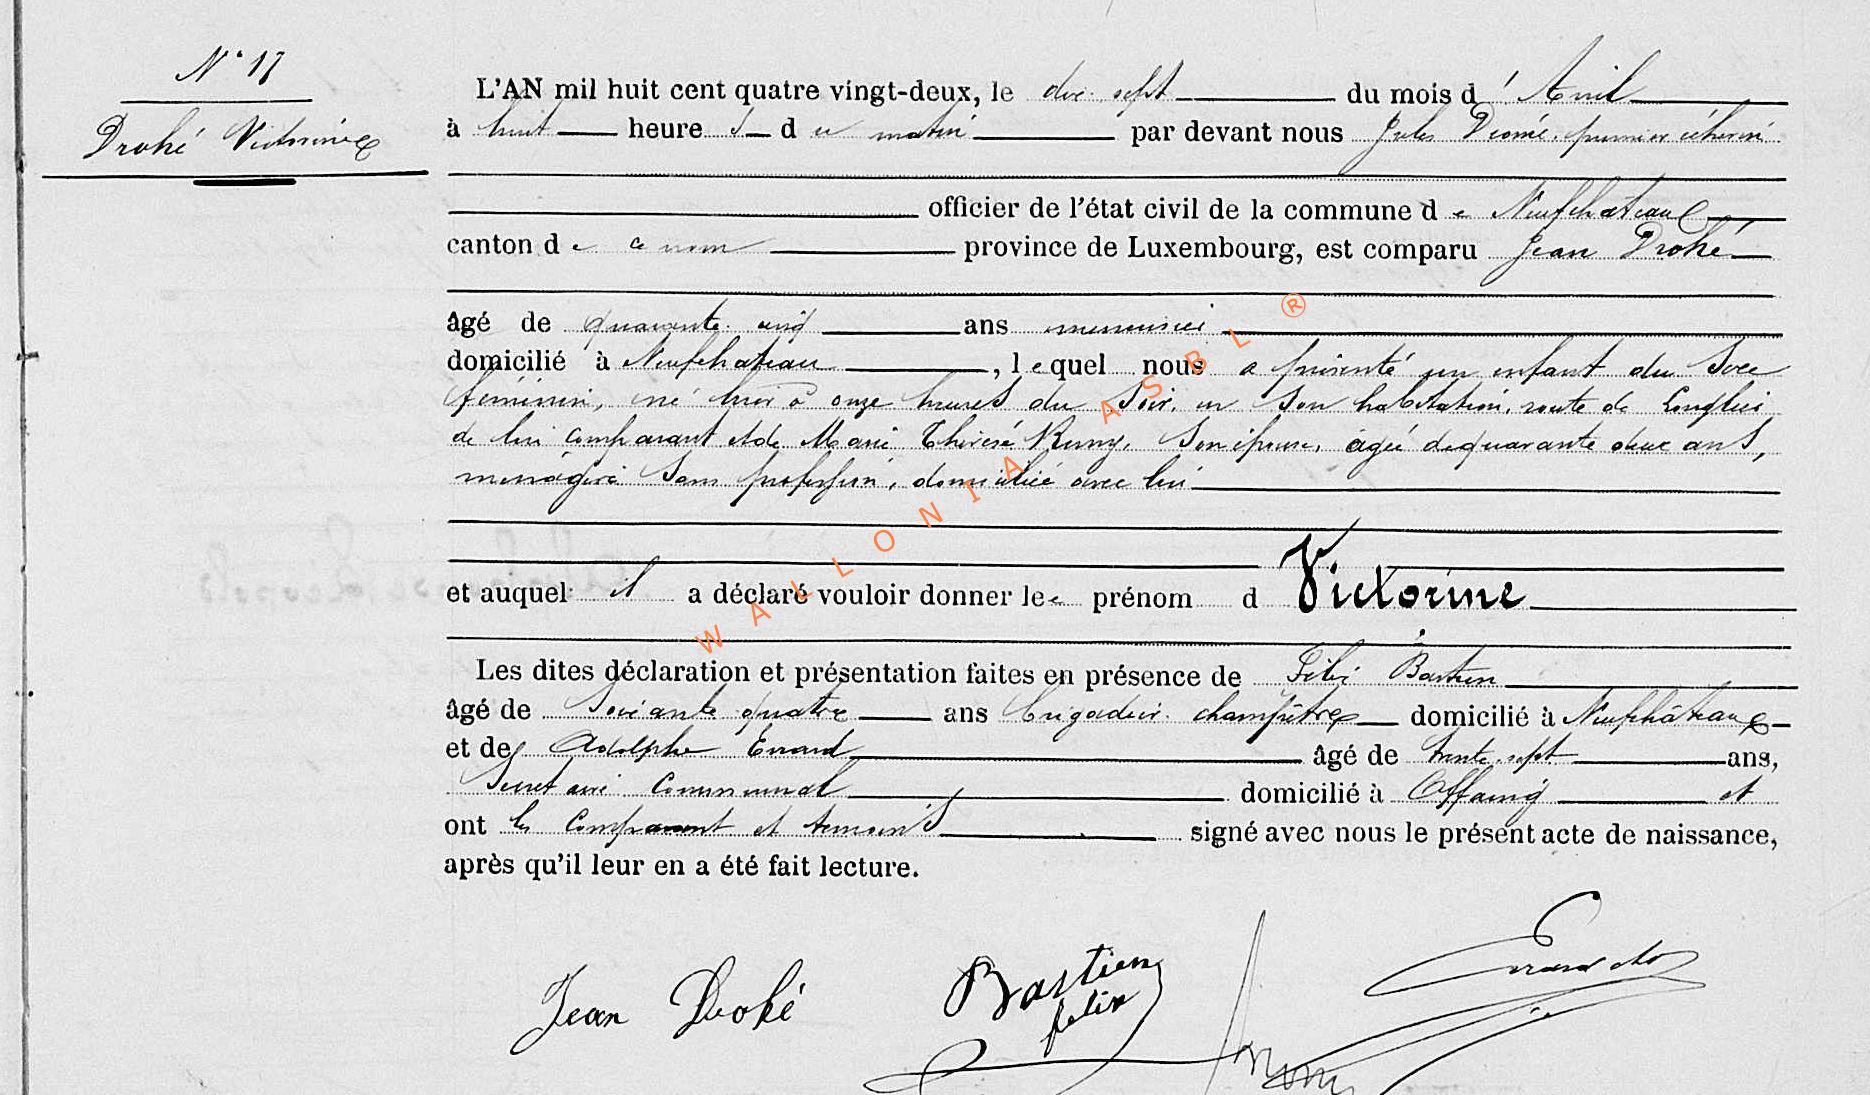 N° 17
Drohé Victorine
L'AN mil huit cent quatre vingt-deux, le dix sept du mois d' Avril
à huit heures du matin par devant nous Jules Dromé, premier échevin
officier de l'état civil de la commune de Neufchateau
canton de ce nom province de Luxembourg, est comparu Jean Drohé
âgé de quarante cinq ans menuisier
domicilié à Neufchateau, lequel nous a présenté un enfant du sexe
féminin, né hier à onze heures du soir, en son habitation, route de Longlier
de lui comparant et de Marie Thérèse son épouse, agée de quarante deux ans,
ménagère sans profession, domiciliée avec lui
et auquel il a déclaré vouloir donner le prénom d Victorine
Les dites déclaration et présentation faites en présence de Félix Bastien
âgé de soixante quatre ans brigadier champêtre domicilié à Neufchâteau
et de Adolphe Evrard âgé de trente sept ans,
Secrétaire communal domicilié à Offaing et
ont les comparant et témoins signé avec nous le présent acte de naissance,
après qu'il leur en a été fait lecture.
Jean Drohé
Bastien
felix
WALLONIA ASBL ®